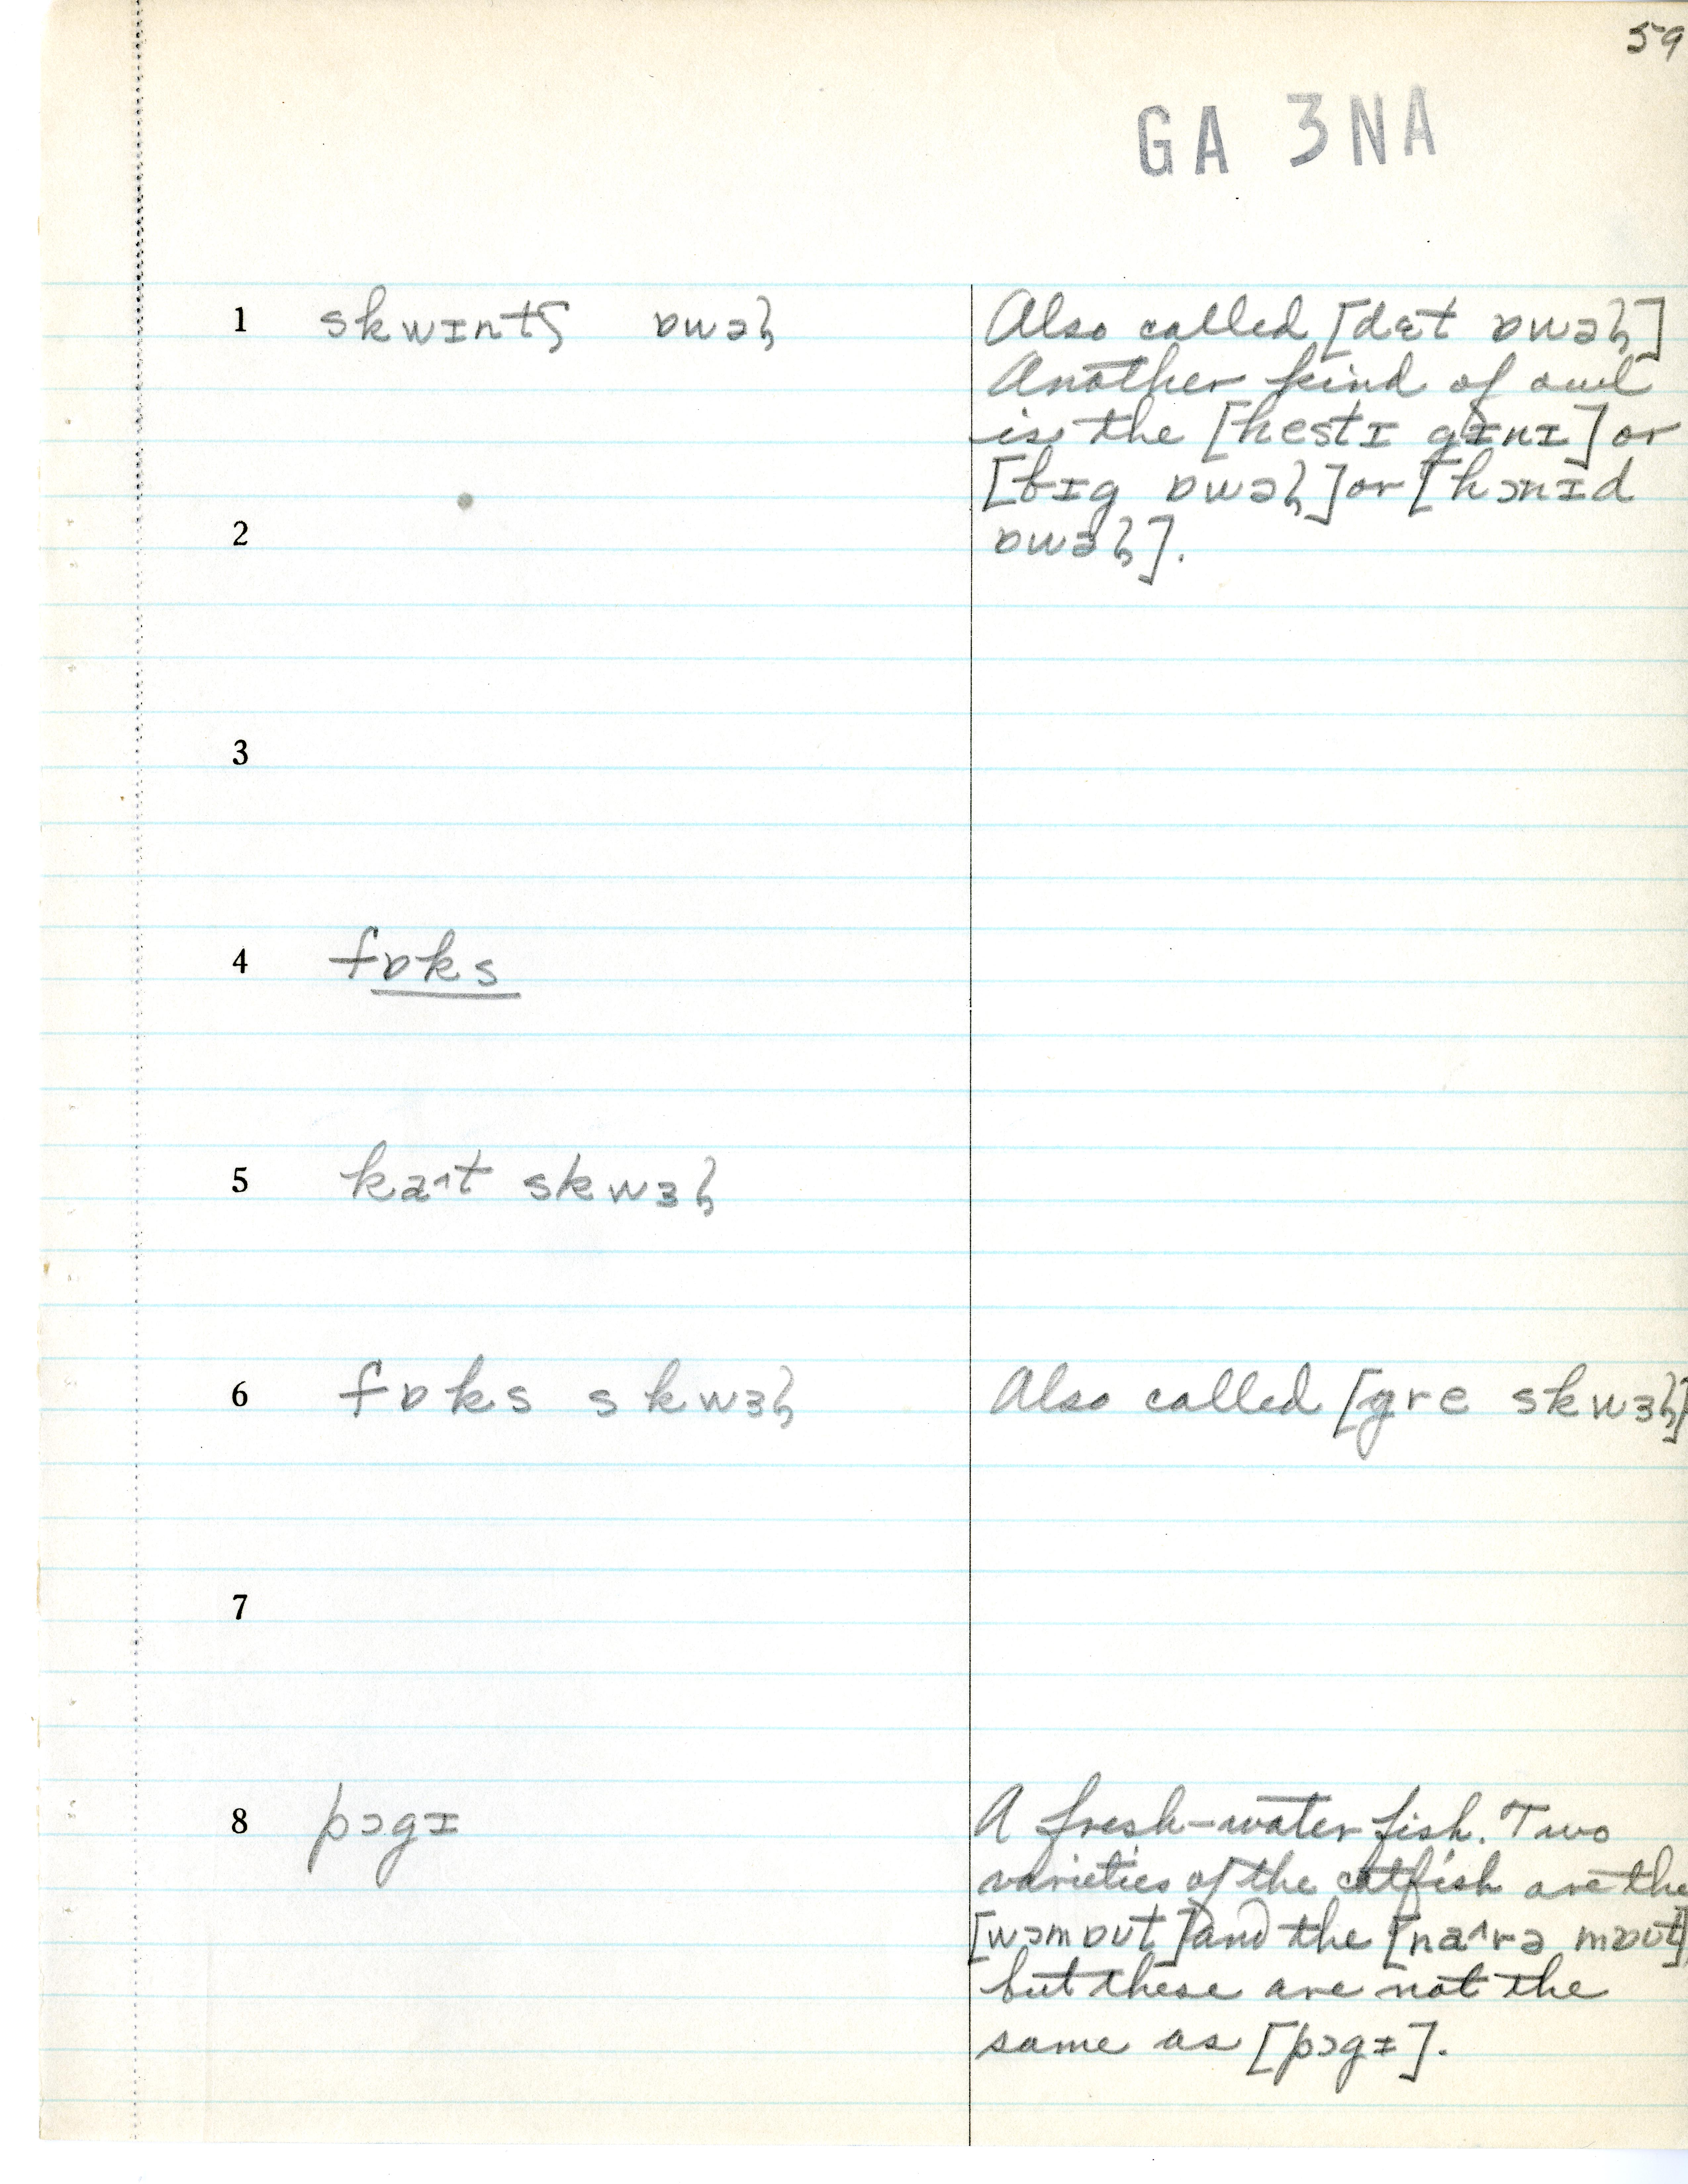 59
GA 3NA
1 skwɪntʃ ɒwəɫ
Also called [dɛt ɒwəɫ]
Another kind of owl
is the [hestɪ gɪnɪ] or
[bɪg ɒwəɫ] or [hɔnɪd
2
ɒwəɫ].
3
4 fɒks
5 kaˆt skwɜɫ
6 fɒks skwɜɫ
Also called [gre skwɜɫ]
7
8 pɔgɪ
A fresh-water fish. Two
varieties of the catfish are the
[wɔmɒʊt] and the [naˆrə mɒʊt]
but these are not the
same as [pɔgɪ].